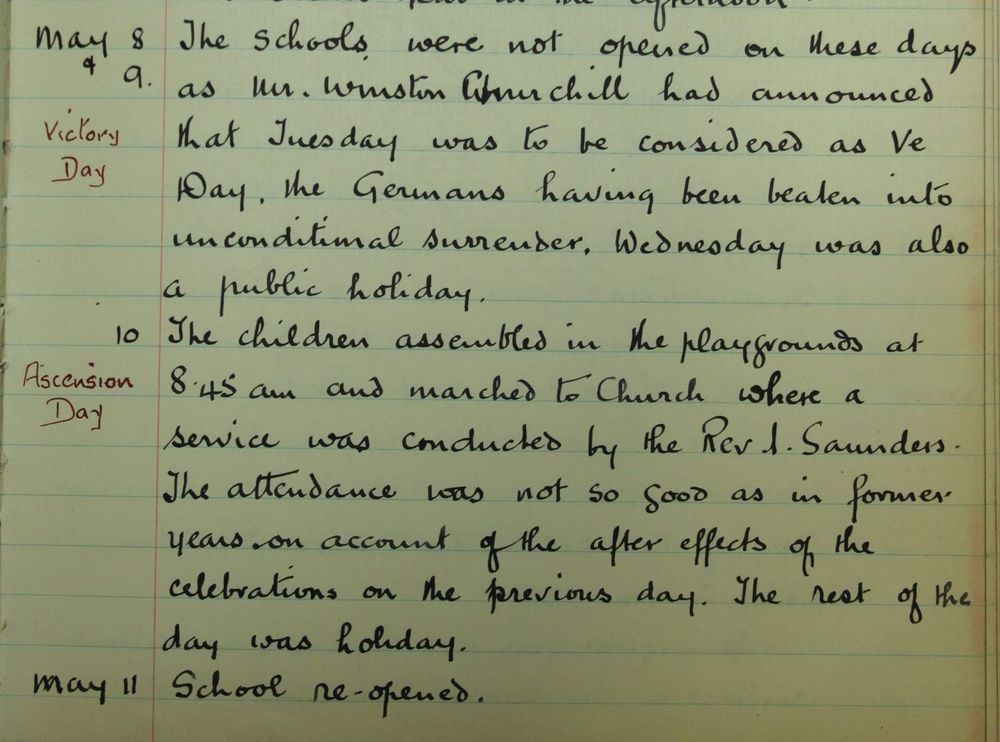 afternoon.
May 8 The schools were not opened on these days
& 9. as Mr. Winston Churchill had announced
Victory that Tuesday was to be considered as Ve
Day Day, the Germans having been beaten into
unconditional surrender. Wednesday was also
a public holiday.
10 The children assembled in the playgrounds at
Ascension 8.45 am and marched to Church where a
Day service was conducted by the Rev I. Saunders.
The attendance was not so good as in former
years on account of the after effects of the
celebrations on the previous day. The rest of the
day was holiday.
May 11 School re-opened.